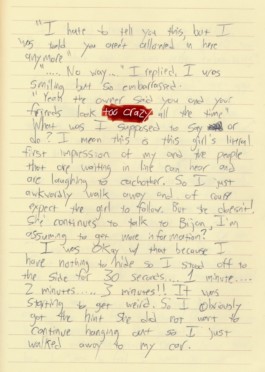 "I hate to tell you this, but I
was told you aren't allowed in here
anymore"
"..... No way..." I replied, I was
smiling but so embarrassed.
"Yeah the owner said you and your
friends look too crazy all the time"
What was I supposed to say or
do? I mean this is this girl's literal
first impression of my and the people
that are waiting in line can hear and
are laughing to eachother. So I just
awkwardly walk away and of course
expect the girl to follow. But she doesn't!
She continues to talk to Bijon, I'm
assuming to get more information?
I was okay w/ that because I
have nothing to hide so I stood off to
the side for 30 seconds... 1 minute....
2 minutes..... 3 minutes!! It was
starting to get weird. So I obviously
got the hint she did not want to
continue hanging out so I just
walked away to my car.